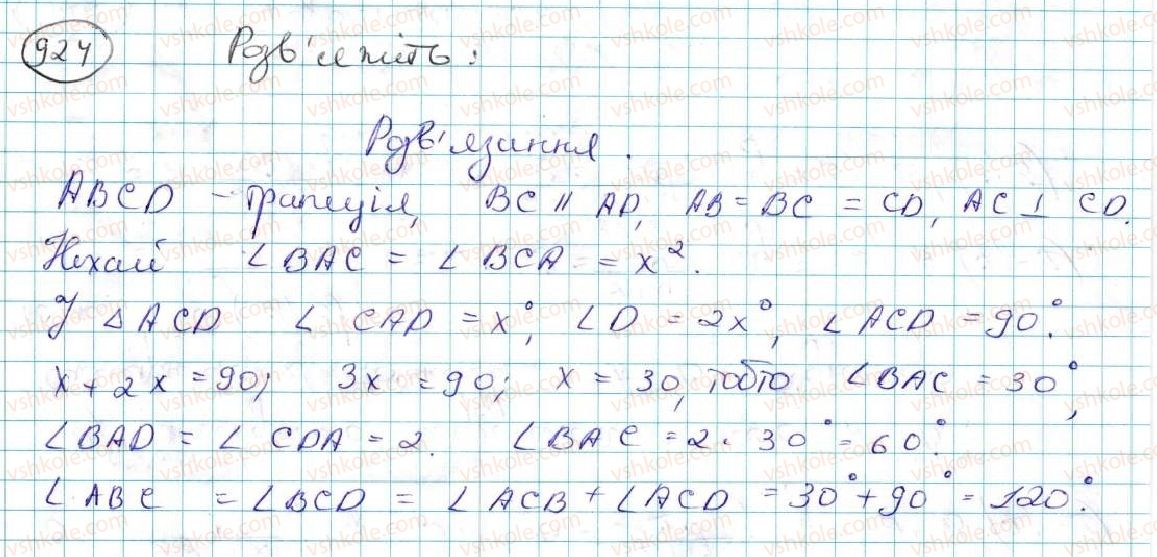 924 Розв'яжіть:
Розв'язання.
ABCD - трапеція, BC || AD, AB = BC = CD, AC ⊥ CD.
Нехай ∠BAC = ∠BCA = x².
У △ ACD ∠ CAD = x°, ∠D = 2x°, ∠ ACD = 90°.
x + 2x = 90; 3x = 90; x = 30, тобто ∠BAC = 30°,
∠BAD = ∠ CDA = 2. ∠BAC = 2 · 30° = 60°.
∠ABC = ∠BCD = ∠ACB + ∠ACD = 30° + 90° = 120°.